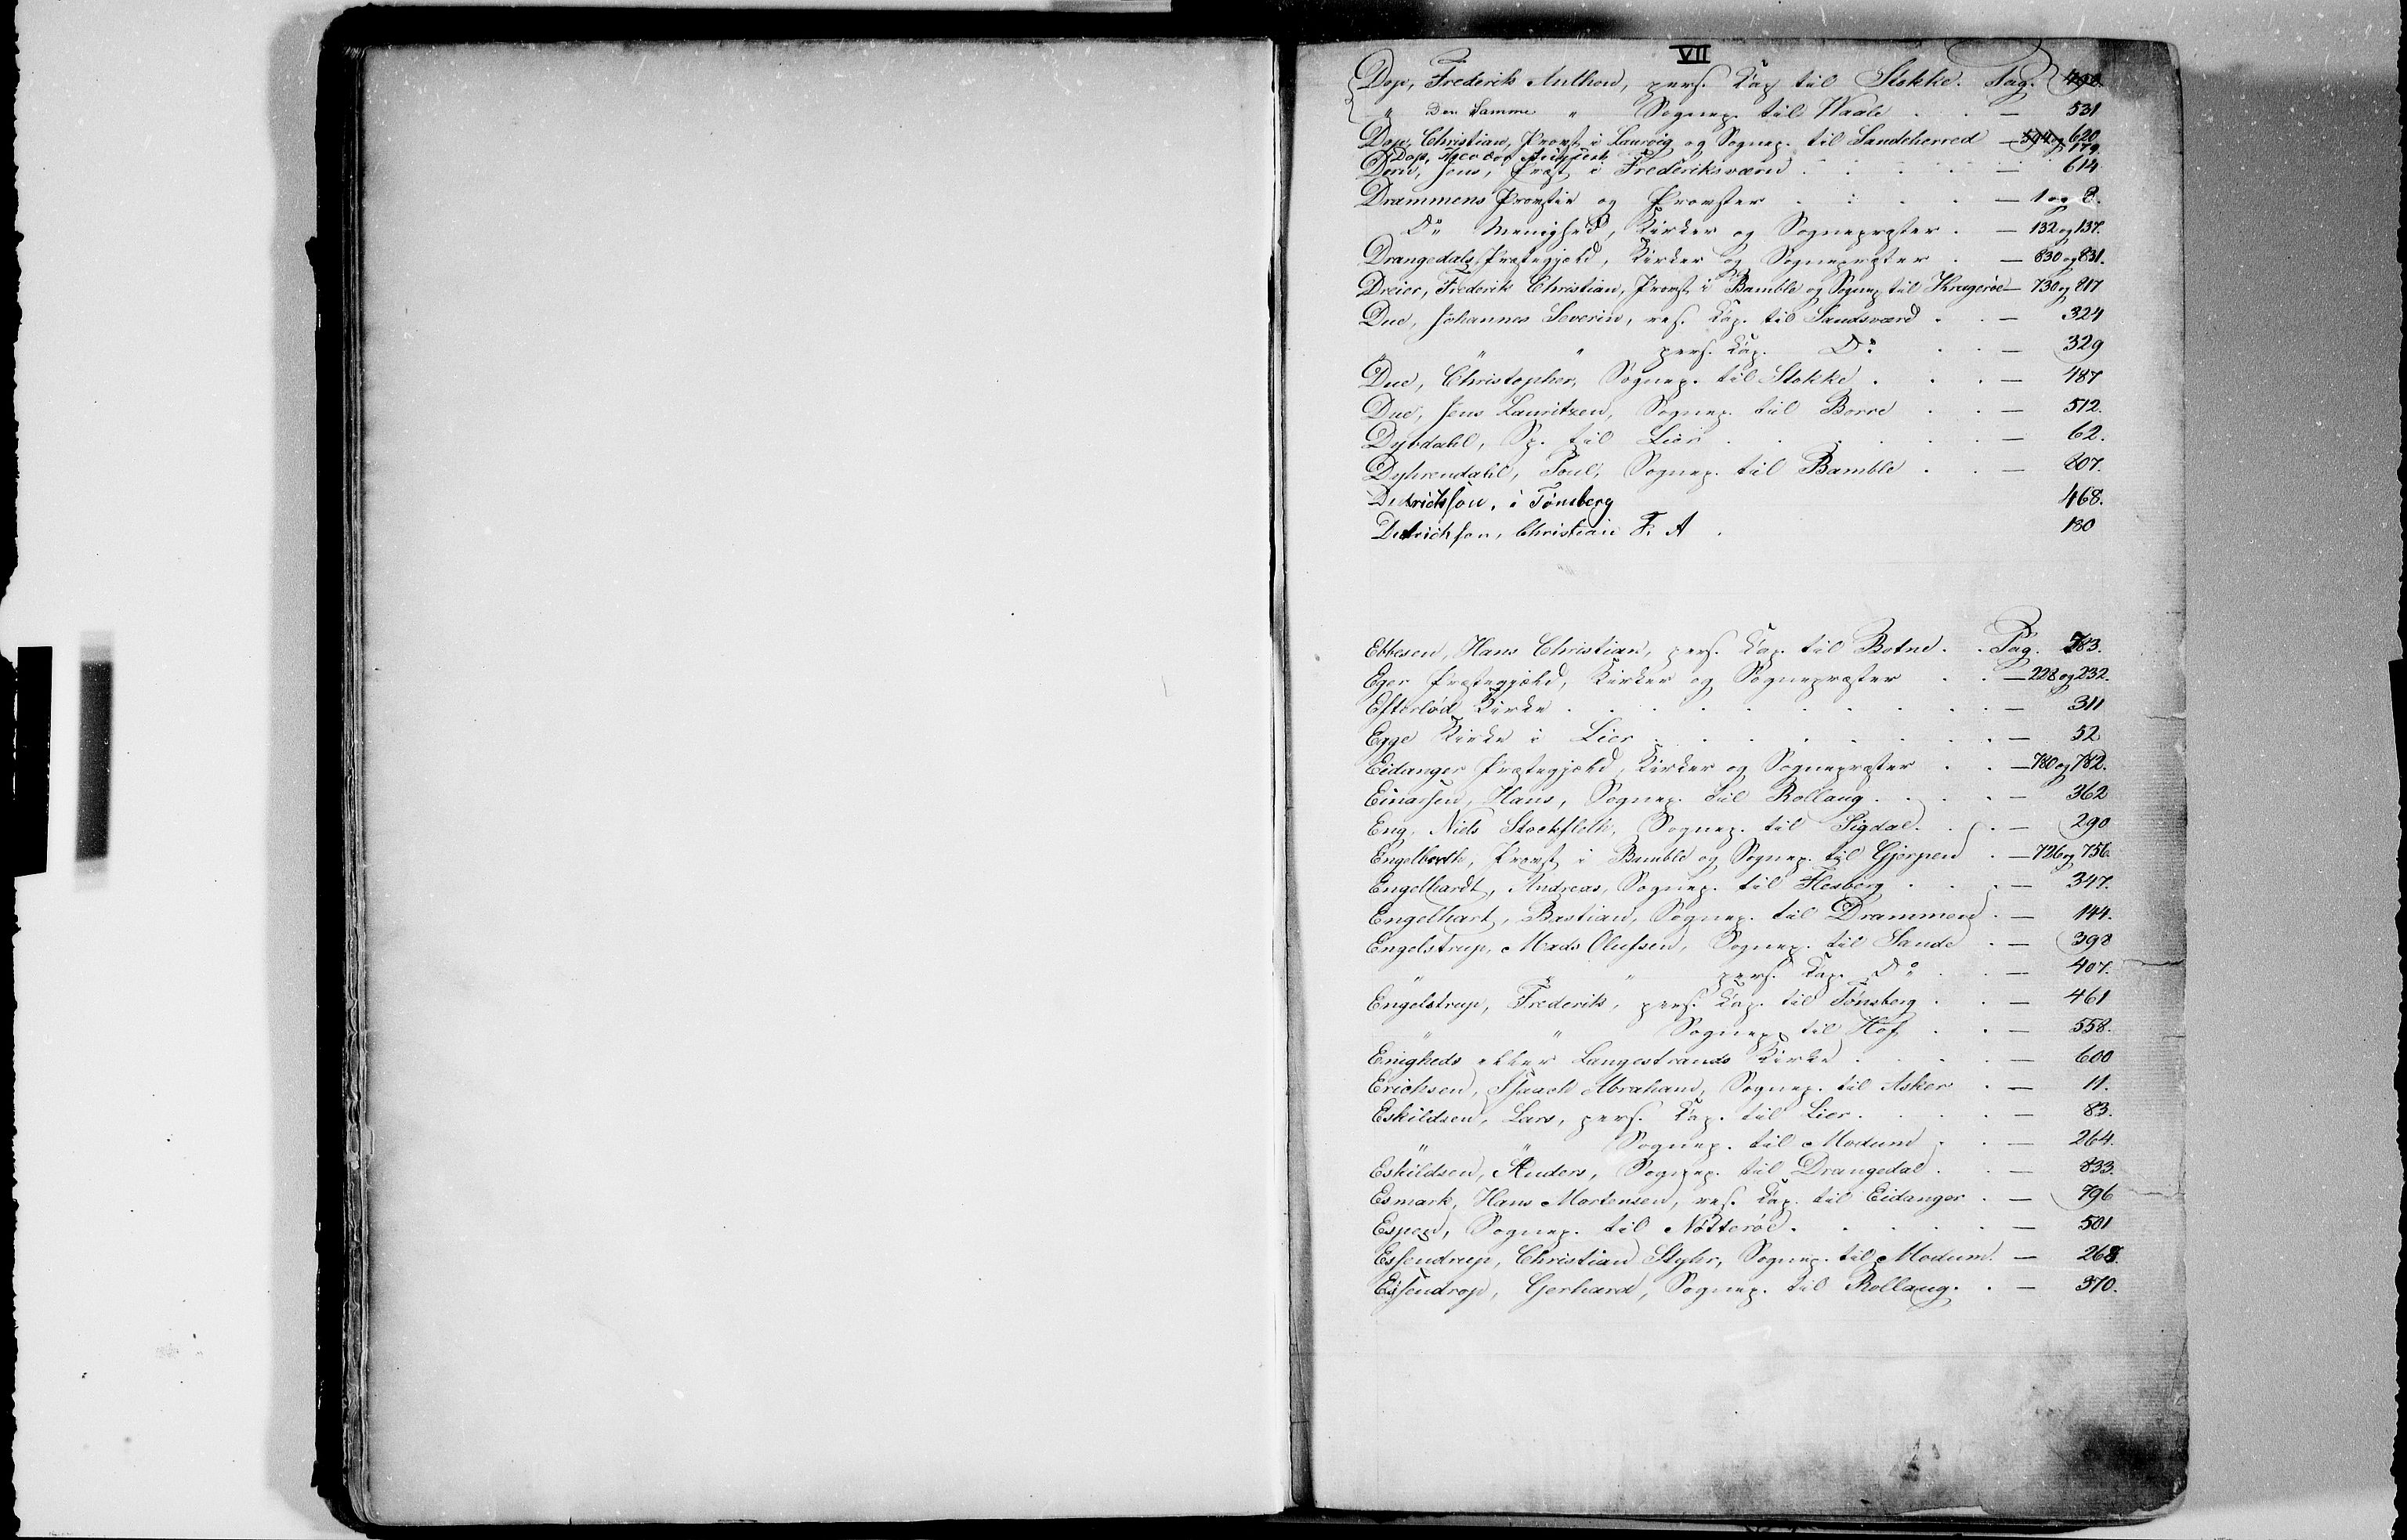 VII
Dop, Frederik Anthon, pers. Cap. til Stokke. Pag. 490.
" Den Samme " Sognep. til Waale . . — 531
Dop, Christian, Provst i Laurvig og Sognep. til Sandeherred — 594 og 620
Dop, Theodor August 179.
Dorn, Jens, Præst i Frederiksværn . . . . . — 614.
Drammens Provstie og Provster . . . . — 1 og 8.
Do Menighed, Kirker og Sognepræster . — 132 og 137.
Drangedals Præstegjæld, Kirker og Sognepræster . — 830 og 831.
Dreier, Frederik Christian, Provst i Bamble og Sognep. til Kragerøe — 730 og 817
Due, Johannes Severin, res. Cap. til Sandsværd . . — 324
" " " pers. Cap. Do . . — 329
Due, Christopher, Sognep. til Stokke . . . — 487
Due, Jens Lauritzen, Sognep. til Borre . . — 512.
Dybdahl, Sp. til Lier . . . . . . — 62.
Dyhrendahl, Poul, Sognep. til Bamble . . — 807.
Dietrichson, i Tønsberg 468.
Dietrichson, Christian F. A . 180
Ebbesen, Hans Christian, pers. Cap. til Botne . . Pag. 783.
Eger Præstegjæld, Kirker og Sognepræster . . — 228 og 232.
Efteløds Kirke . . . . . . . . . . — 311
Egge Kirke i Lier . . . . . . . . — 52
Eidanger Præstegjæld, Kirker og Sognepræster . . — 780 og 782.
Einarsen, Hans, Sognep. til Rollaug . . . . — 362
Eng, Niels Stockfleth, Sognep. til Sigdal . . . — 290
Engelbreth, Provst i Bamble og Sognep. til Gjerpen . — 726 og 756.
Engelhardt, Andreas, Sognep. til Flesberg . . . — 347.
Engelhart, Bastian, Sognep. til Drammen . — 144.
Engelstrup, Mads Olufsen, Sognep. til Sande . — 398
" " " pers. Cap. Do . . — 407.
Engelstrup, Frederik, pers. Cap. til Tønsberg . . — 461
" " Sognep. til Hof . . — 558.
Enigheds eller Langestrands Kirke . . . . — 600
Erichsen, Isaach Abraham, Sognep. til Asker . — 11.
Eskildsen, Lars, pers. Cap. til Lier . . . . — 83.
" " Sognep. til Modum . . — 264.
Eskildsen, Anders, Sognep. til Drangedal . . — 833.
Esmark, Hans Mortensen, res. Cap. til Eidanger . — 796
Espen, Sognep. til Nøtterøe . . . . . — 501
Essendrup, Christian Styhr, Sognep. til Modum. — 268.
Essendrop, Gerhard, Sognep. til Rollaug . . — 370.